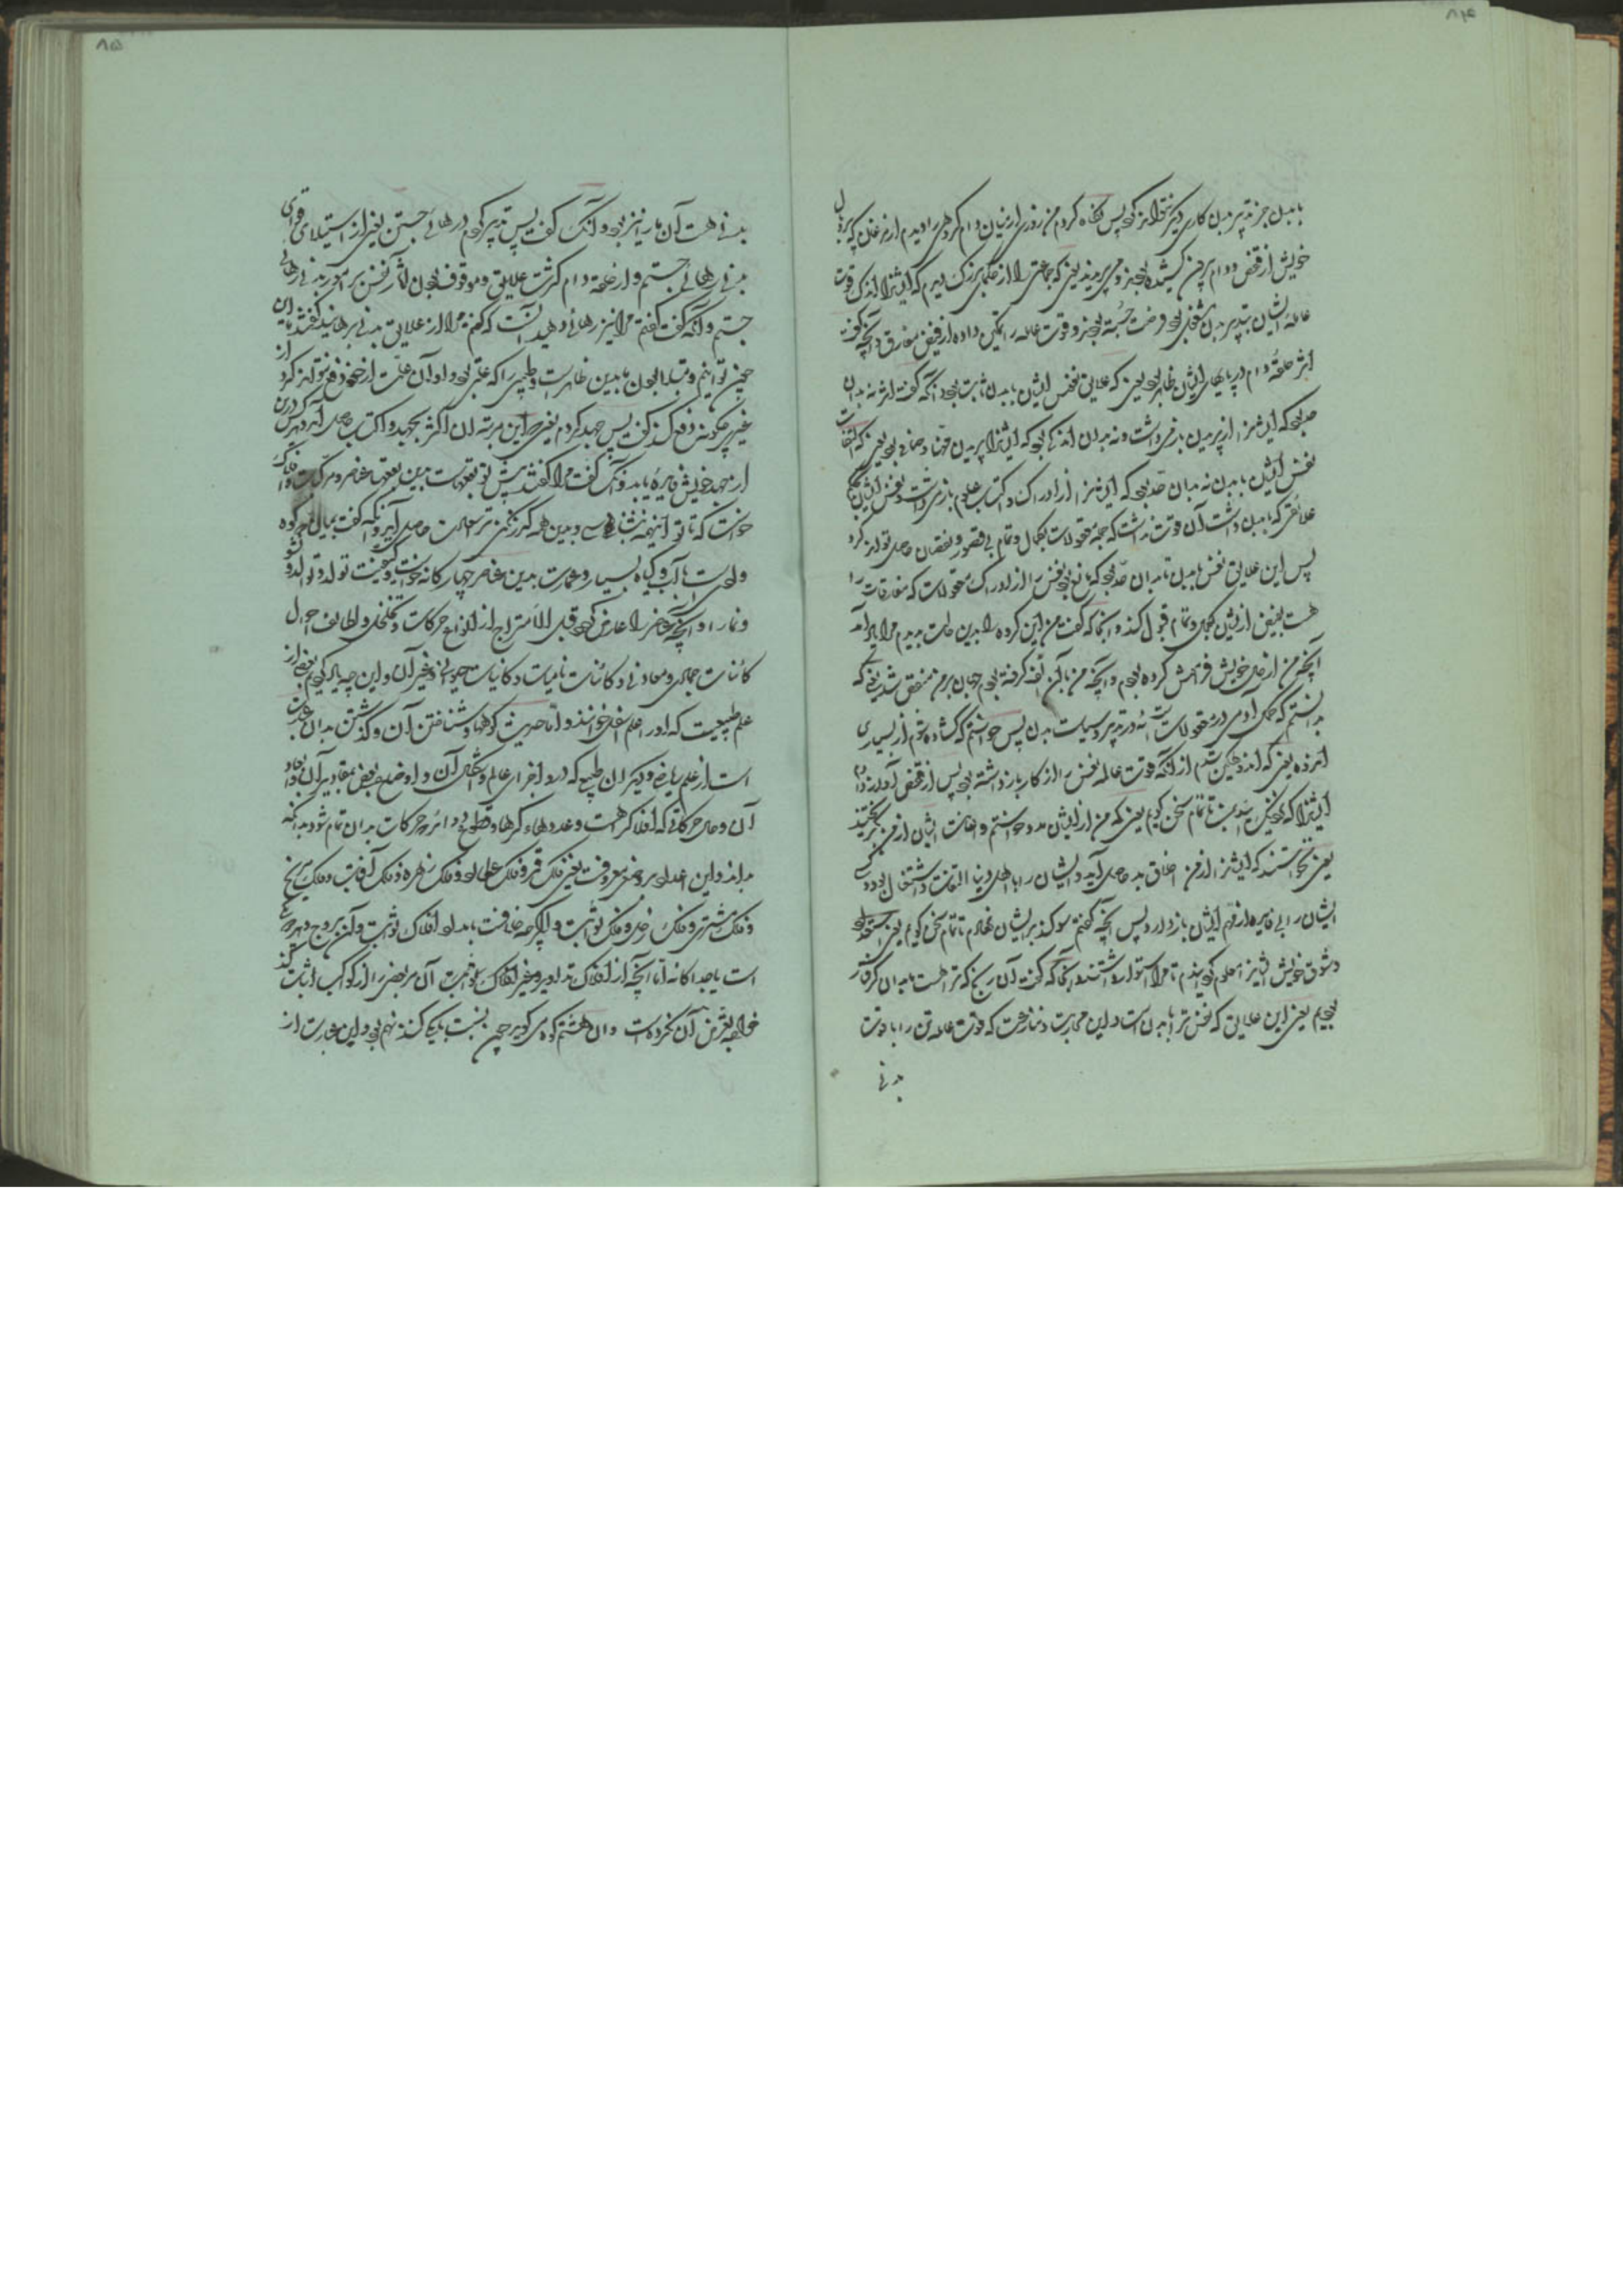 ۸۴
با بدن جز تدبیر بدن کاری دیگر نتواند بود پس نگاه کردم من روزی از میان دام گروهی را دیدم از مرغان که سر و بال
خویش از قفص و دام بیرون کشیده بودند و می پریدند یعنی که جماعتی را از حکمای بزرگ دیدم که ایشانرا اندک قوت
عامله ایشان بتدبیر بدن مشغول بود و رخصت جسته بودند و قوت عامله را تمکین داده از فیض مفارق و آنچه گفت
اثر حلقه دام در پایهای ایشان ظاهر بود یعنی که علایق نفس ایشان با بدن ثابت بود و آنگه گفت اثر نه بدان
حد بود که ایشانرا از پریدن باز میداشت و نه بدان اندکی بود که ایشانرا پریدن مهنا و صافی بود یعنی که التفات
نفس ایشان با بدن نه بدان حد بود که ایشانرا از ادراک و اکتساب علوم باز میداشت و نفس ایشان با
علائقی که با بدن داشت آن قوت نداشت که جمله معقولات بکمال و تمام بی قصور و نقصان حاصل تواند کرد
پس این علایق نفس با بدن تا بدان حد بود که مانع بود نفس را از ادراک معقولات که مفارقات را
هست بفیض ازیشان بکمال و تمام قبول کند و آنجا که گفت من این گروه را بدین حالت بدیدم مرا یاد آمد
آنچه من از حال خویش فراموش کرده بودم و آنچه من با آن الف گرفته بودم جهان بر من منغص شد یعنی که
بدانستم که کمال آدمی در معقولاتست نه در تدبیر و سیاست بدن پس خواستم که گشاده شوم از بسیاری
اندوه یعنی که اندوهگین شدم از آنکه قوت عامله نفس را از کار باز داشته بود پس از قفص آواز دادم
ایشانرا که نزدیک من آیید تا با تمام سخن گویم یعنی که من از ایشان مدد خواستم و اعانت ایشان از من بگریختند
یعنی نخواستند که ایشانرا از من اخلاق بد حاصل آید و ایشان را با اهل دنیا التفات و اشتغال بود و وی
ایشان را بی فایده از قدم ایشان باز دارد پس آنچه گفتم سوگند بر ایشان نهادم تا تمام سخن گویم یعنی استعداد
و شوق خویش ایشانرا معلوم گردانیدم تا مرا استوار داشتند و آنجا که گفت آن رنج که ترا هست ما بدان گرفتار
بودیم یعنی این علایق که نفس ترا با بدنست و این محاربت و منازعت که قوت عامله تن را با قوت
بدنی
۸۵
بدنی هست آن ما را نیز بود و آنگه گفت پس تدبیر کردم در رهائی جستن یعنی از استیلای قوای
بدنی رهائی جستم و از حلقه دام کثرت علایق و موقوف بودن آثار نفس بر امور بدنی رهائی
جستم و آنگه گفت گفتم مرا نیز رهائی دهید آنست که گفتم مرا از علایق بدنی برهانید گفتند ما این
چون توانیم و مبتلا بودن ما بدین ظاهرست و طبیبی را که علتی بود و او آن علت از خود دفع نتواند کرد از
غیر چگونه دفع کند گفت پس جهد کردم یعنی در این مرتبه انسان اگر بجهد و اکتساب حاصل آید و هر کس درین
از جهد خویش فایده یابد و آنگه گفت مرا گفتند پیش تو بقعهاست بدین بقعها عناصر و مرکبات و افلاک
خواست که تا تو اینهمه نشناسی و بدین همه گذر نکنی ترا سعادت حاصل آید و آنگه گفت بمیان دو کوه
وادیست با آب و گیاه بسیار و عمارت بدین عناصر چهارگانه خواست و کیفیت تولد و توالد و نشو
و نما را و آنچه عناصر را عارض گردد قبل الامتزاج از انواع حرکات و تخلخل و لطایف احوال
کائنات جمادی و معادنی و کائنات نامیات و کائنات حیوانی و غیر آن و این چه یاد کردیم بعضی از
علم طبیعیست که او را علم اسفل خوانند و اما حدیث کوهها و شناختن آن و گذشتن بدان عبارت
است از علم ریاضی و دیگر از طبیعی که در او اجزای عالم و اشکال آن و اوضاع بعض بمقادیر آن و ابعاد
آن و حال حرکاتی که افلاک راست و عددهاء کرهها و قطوع و دوائر و حرکات بدان تمام شود بدانکه
بداند و این اعداد بر وضع معروفست یعنی فلک قمر و فلک عطارد و فلک زهره و فلک آفتاب و فلک مریخ
و فلک مشتری و فلک زحل و فلک ثوابت و اگرچه خلافست بعدد افلاک ثوابت و آن بروج و هر چه
است یا جداگانه اما آنچه از افلاک تداویر و غیر افلاک ثوابت آن بعضی را از کواکب اثبات کند
خواجه تعرض آن نکرده است و آن هشتم کوه می گوید چون نسبت بیک کنند نهم بود و این عبارت از